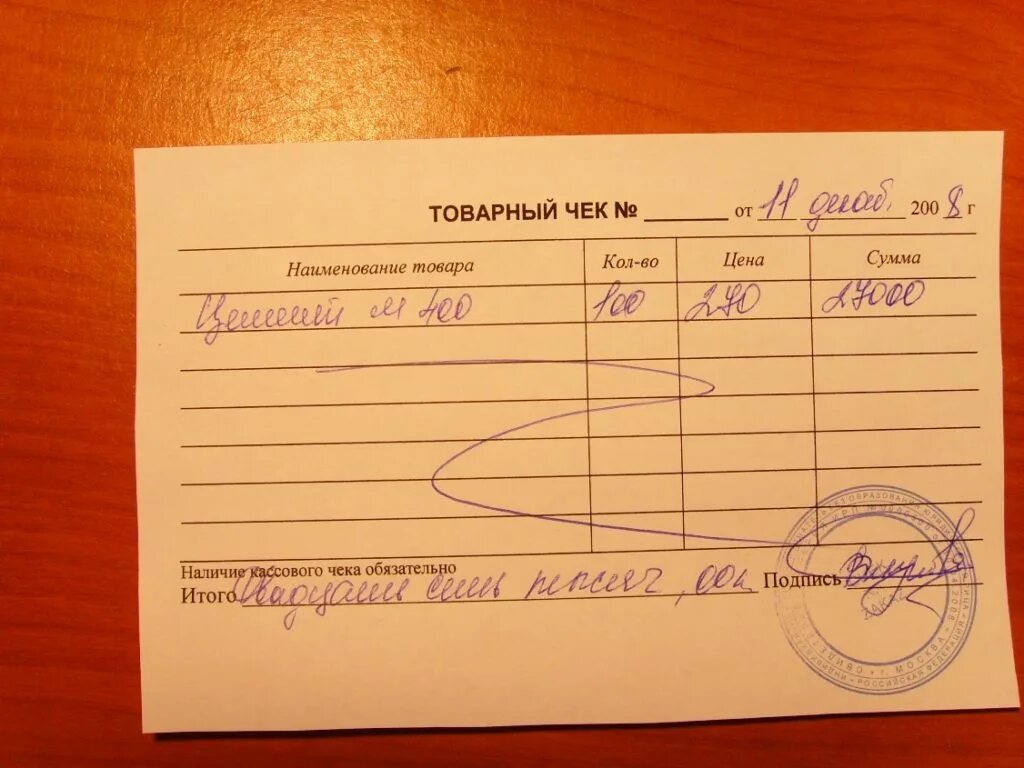 ТОВАРНЫЙ ЧЕК № ________ от 11 декаб. 2008 г
Наименование товара Кол-во Цена Сумма
Цемент М 400 100 270 27000
Наличие кассового чека обязательно
Итого Двадцать семь тысяч, 00к Подпись
БЕЗ ОБРАЗОВАНИЯ ЮРИДИЧЕСКОГО ЛИЦА
РОССИЙСКАЯ ФЕДЕРАЦИЯ
г. МОСКВА